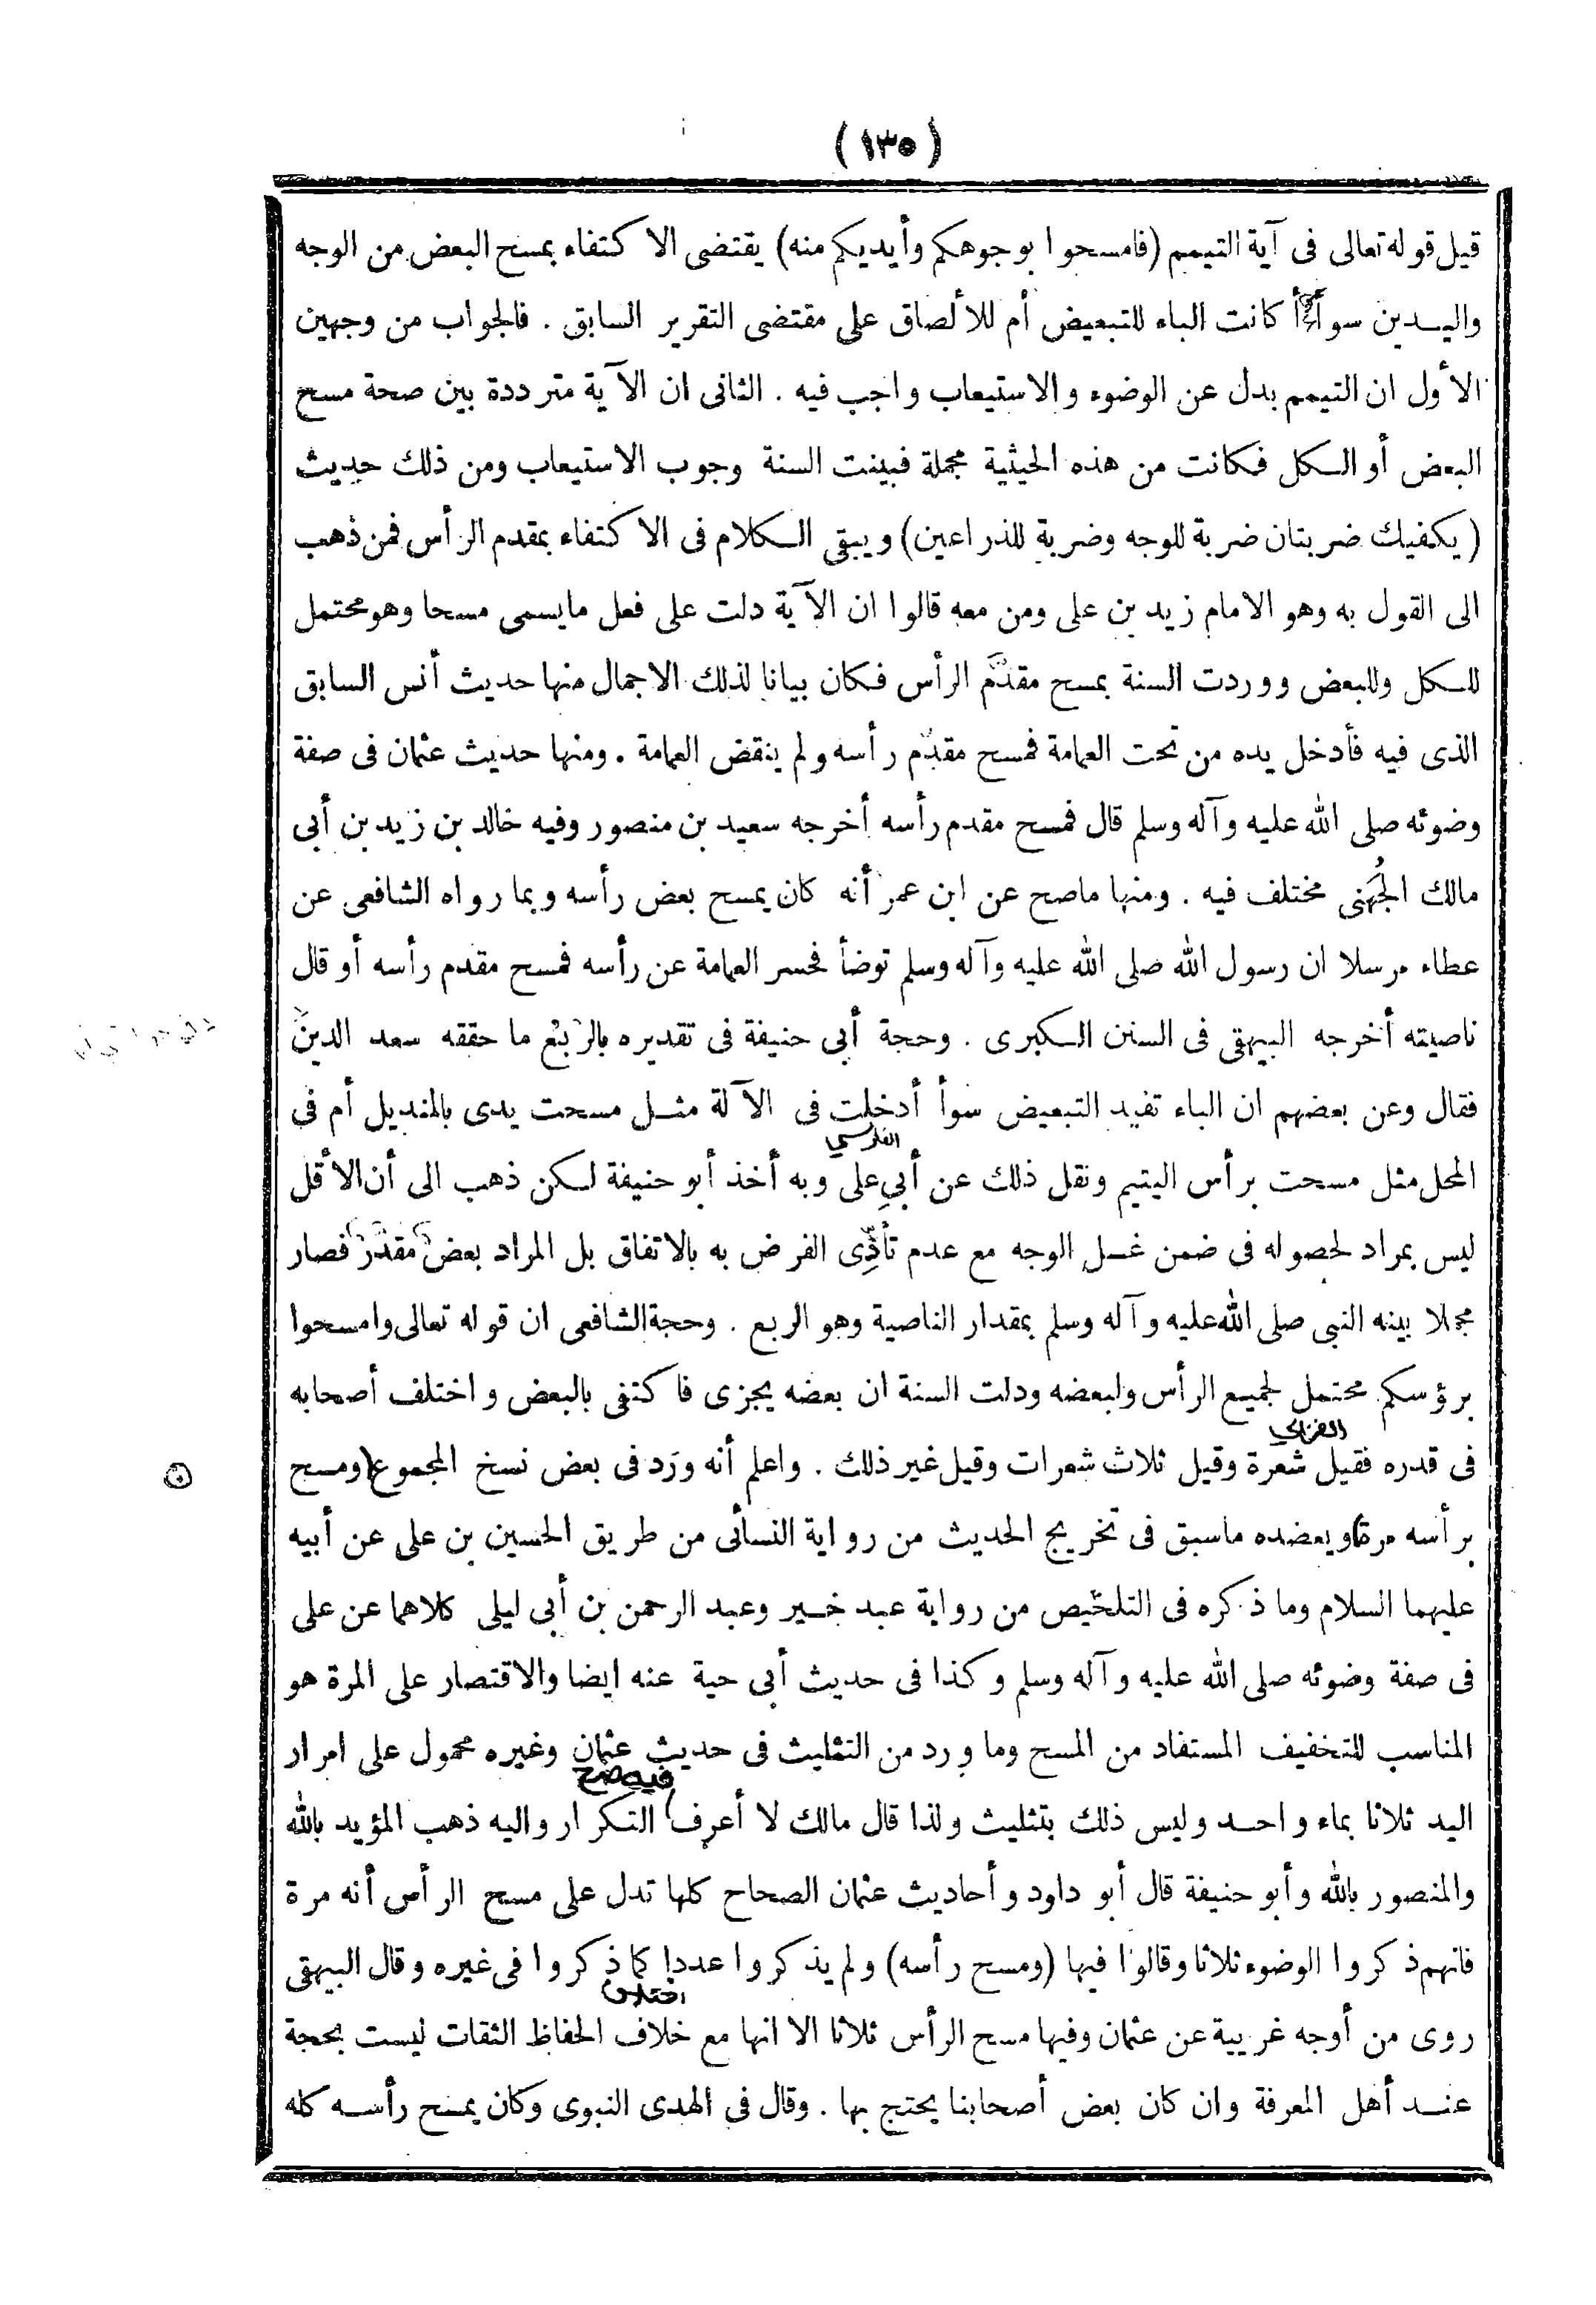 (١٣٥)
قيل قوله تعالى فى آية التيمم (فامسحوا بوجوهكم وأيديكم منه) يقتضى الاكتفاء بمسح البعض من الوجه
واليدين سوأ أكانت الباء للتبعيض أم للالصاق على مقتضى التقرير السابق . فالجواب من وجهين
الأول ان التيمم بدل عن الوضوء والاستيعاب واجب فيه . الثانى ان الآية مترددة بين صحة مسح
البعض أو الكل فكانت من هذه الحيثية مجملة فبينت السنة وجوب الاستيعاب ومن ذلك حديث
(يكفيك ضربتان ضربة للوجه وضربة للذراعين) ويبقى الكلام فى الاكتفاء بمقدم الرأس فمن ذهب
الى القول به وهو الامام زيد بن على ومن معه قالوا ان الآية دلت على فعل مايسمى مسحا وهو محتمل
للكل وللبعض ووردت السنة بمسح مقدّم الرأس فكان بيانا لذلك الاجمال منها حديث أنس السابق
الذى فيه فأدخل يده من تحت العمامة فمسح مقدّم رأسه ولم ينقض العمامة . ومنها حديث عثمان فى صفة
وضوئه صلى الله عليه وآله وسلم قال فمسح مقدم رأسه أخرجه سعيد بن منصور وفيه خالد بن زيد بن أبى
مالك الجُهَنى مختلف فيه . ومنها ماصح عن ابن عمر أنه كان يمسح بعض رأسه وبما رواه الشافعى عن
عطاء مرسلا ان رسول الله صلى الله عليه وآله وسلم توضأ فحسر العمامة عن رأسه فمسح مقدم رأسه أو قال
ناصيته أخرجه البيهقى فى السنن الكبرى . وحجة أبى حنيفة فى تقديره بالرُبْع ما حققه سعد الدين
فقال وعن بعضهم ان الباء تفيد التبعيض سوأ أدخلت فى الآلة مثل مسحت يدى بالمنديل أم فى
الفارسي
المحل مثل مسحت برأس اليتيم ونقل ذلك عن أبى على وبه أخذ أبو حنيفة لكن ذهب الى أن الأقل
ليس بمراد لحصوله فى ضمن غسل الوجه مع عدم تأدِّى الفرض به بالاتفاق بل المراد بعض مقدر فصار
مجملا بينه النبى صلى الله عليه وآله وسلم بمقدار الناصية وهو الربع . وحجة الشافعى ان قوله تعالى وامسحوا
برؤسكم محتمل لجميع الرأس ولبعضه ودلت السنة ان بعضه يجزى فاكتفى بالبعض واختلف أصحابه
الغزالي
فى قدره فقيل شعرة وقيل ثلاث شعرات وقيل غير ذلك . واعلم أنه ورَد فى بعض نسخ المجموع (ومسح
برأسه مرة) ويعضده ماسبق فى تخريج الحديث من رواية النسأى من طريق الحسين بن على عن أبيه
عليهما السلام وما ذكره فى التلخيص من رواية عبد خير وعبد الرحمن بن أبى ليلى كلاهما عن على
فى صفة وضوئه صلى الله عليه وآله وسلم وكذا فى حديث أبى حية عنه ايضا والاقتصار على المرة هو
المناسب للتخفيف المستفاد من المسح وما ورد من التثليث فى حديث عثمان وغيره محمول على امرار
فيه صح
اليد ثلاثا بماء واحد وليس ذلك بتثليث ولذا قال مالك لا أعرف التكرار واليه ذهب المؤيد بالله
والمنصور بالله وأبو حنيفة قال أبو داود وأحاديث عثمان الصحاح كلها تدل على مسح الرأس أنه مرة
فانهم ذكروا الوضوء ثلاثا وقالوا فيها (ومسح رأسه) ولم يذكروا عددا كما ذكروا فى غيره وقال البيهقى
اختلاف
روى من أوجه غريبة عن عثمان وفيها مسح الرأس ثلاثا الا انها مع خلاف الحفاظ الثقات ليست بحجة
عند أهل المعرفة وان كان بعض أصحابنا يحتج بها . وقال فى الهدى النبوى وكان يمسح رأسه كله